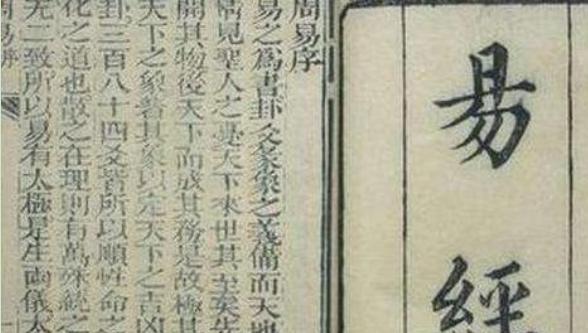 易經
周易序
易之爲書卦爻彖象之義備而天地
情見聖人之憂天下來世其至矣先
開其物後天下而成其務是故極其
天下之象著其象以定天下之吉凶
卦三百八十四爻皆所以順性命之
化之道也散之在理則有萬殊統之
无二致所以易有太極是生兩儀太
周易序